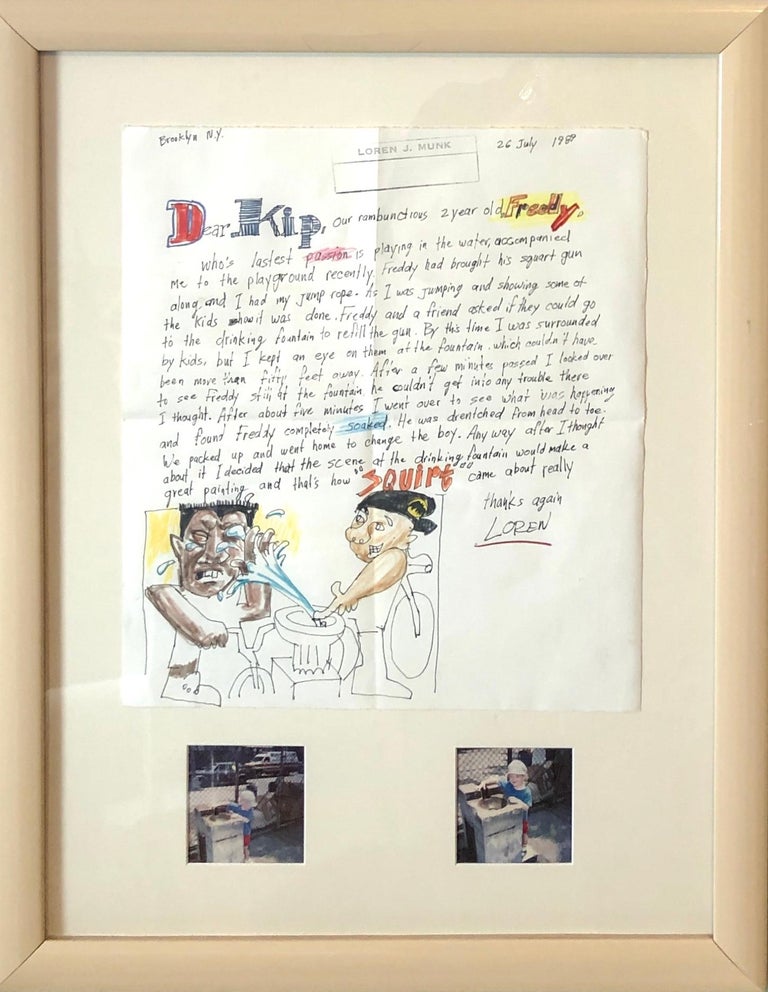 Brooklyn N.Y.
LOREN J. MUNK
26 July 1989
Dear Kip, Our rambunctious 2 year old, Freddy,
who's lastest passion is playing in the water, accompanied
me to the playground recently. Freddy had brought his squart gun
along, and I had my jump rope. As I was jumping and showing some of
the kids how it was done. Freddy and a friend asked if they could go
to the drinking fountain to refill the gun. By this time I was surrounded
by kids, but I kept an eye on them at the fountain. which couldn't have
been more than fifty feet away. After a few minutes passed I looked over
to see Freddy still at the fountain, he couldn't get into any trouble there
I thought. After about five minutes I went over to see what was happening
and found Freddy completely soaked. He was drentched from head to toe.
We packed up and went home to change the boy. Any way after I thought
about it I decided that the scene at the drinking fountain would make a
great painting and that's how "Squirt" came about really
thanks again
LOREN